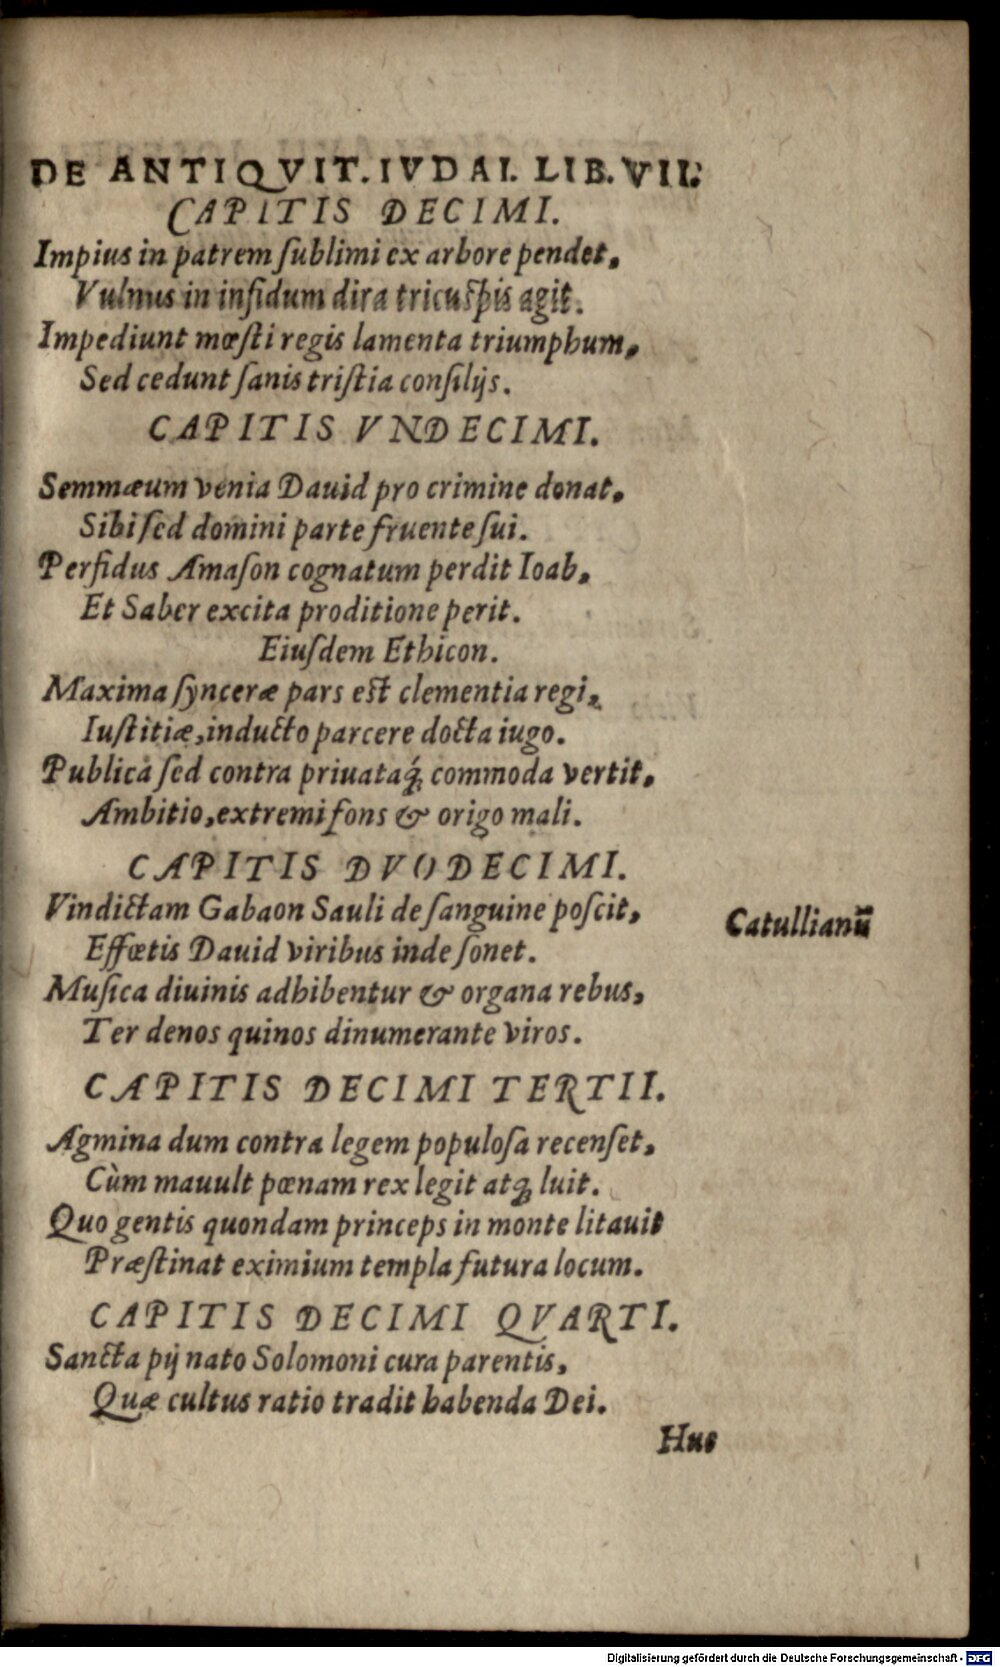 DE ANTIQVIT. IVDAI. LIB. VII.
CAPITIS DECIMI.
Impius in patrem ſublimi ex arbore pendet,
Vulnus in infidum dira tricuſpis agit.
Impediunt mœſti regis lamenta triumphum,
Sed cedunt ſanis triſtia conſilijs.
CAPITIS VNDECIMI.
Semmæum venia Dauid pro crimine donat,
Sibi ſed domini parte fruente ſui.
Perfidus Amaſon cognatum perdit Ioab,
Et Saber excita proditione perit.
Eiuſdem Ethicon.
Maxima ſynceræ pars eſt clementia regi,
Iuſtitiæ, inducto parcere docta iugo.
Publica ſed contra priuataq́; commoda vertit,
Ambitio, extremi fons & origo mali.
CAPITIS DVODECIMI.
Vindictam Gabaon Sauli de ſanguine poſcit,
Catullianū
Effœtis Dauid viribus inde ſonet.
Muſica diuinis adhibentur & organa rebus,
Ter denos quinos dinumerante viros.
CAPITIS DECIMI TERTII.
Agmina dum contra legem populoſa recenſet,
Cùm mauult pœnam rex legit atq; luit.
Quo gentis quondam princeps in monte litauit
Præſtinat eximium templa futura locum.
CAPITIS DECIMI QVARTI.
Sancta pij nato Solomoni cura parentis,
Quæ cultus ratio tradit habenda Dei.
Huc
Digitalisierung gefördert durch die Deutsche Forschungsgemeinschaft - DFG